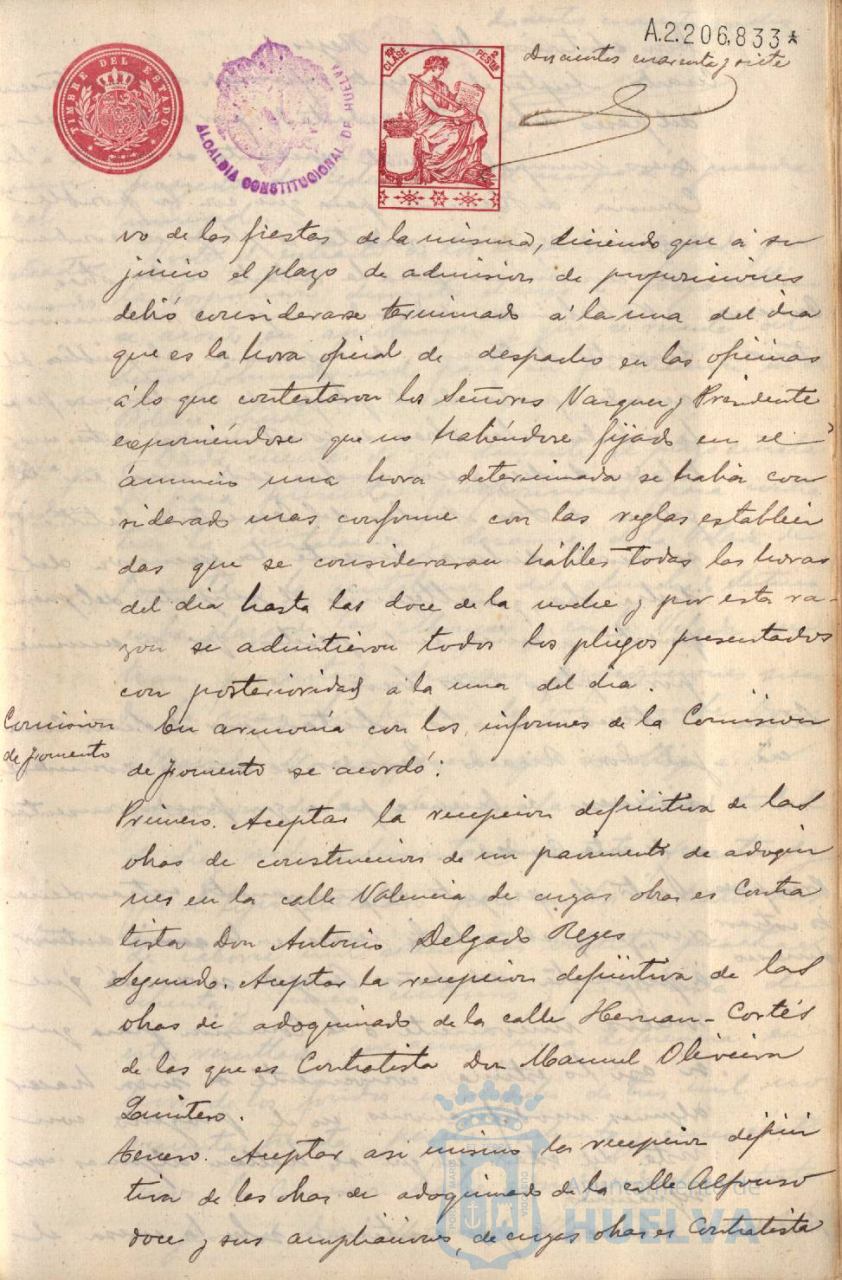 A.2.206.833*
TIMBRE DEL ESTADO
ALCALDIA CONSTITUCIONAL DE HUELVA
10ª CLASE 2 PESETAS
Doscientos cuarenta y siete
vo de las fiestas de la misma, diciendo que á su
juicio el plazo de admision de proposiciones
debió considerarse terminado á la una del dia
que es la hora oficial de despacho en las oficinas
á lo que contestaron los Señores Vazquez y Presidente
exponiéndose que no habiéndose fijado en el
anuncio una hora determinada se habia con
siderado mas conforme con las reglas estableci
das que se consideraran hábiles todas las horas
del dia hasta las doce de la noche y por esta ra-
zon se admitieron todos los pliegos presentados
con posterioridad á la una del dia.
Comision
de fomento
En armonía con los informes de la Comision
de fomento se acordó:
Primero. Aceptar la recepcion definitiva de las
obras de construccion de un pavimento de adoqui
nes en la calle Valencia de cuyas obras es Contra
tista Don Antonio Delgado Reyes
Segundo. Aceptar la recepcion definitiva de las
obras de adoquinado de la calle Hernan-Cortés
de las que es Contratista Don Manuel Oliveira
Quintero.
Tercero. Aceptar asi mismo la recepcion defini
tiva de las obras de adoquinado de la calle Alfonso
doce y sus ampliaciones, de cuyas obras es Contratista
Ayuntamiento de
HUELVA